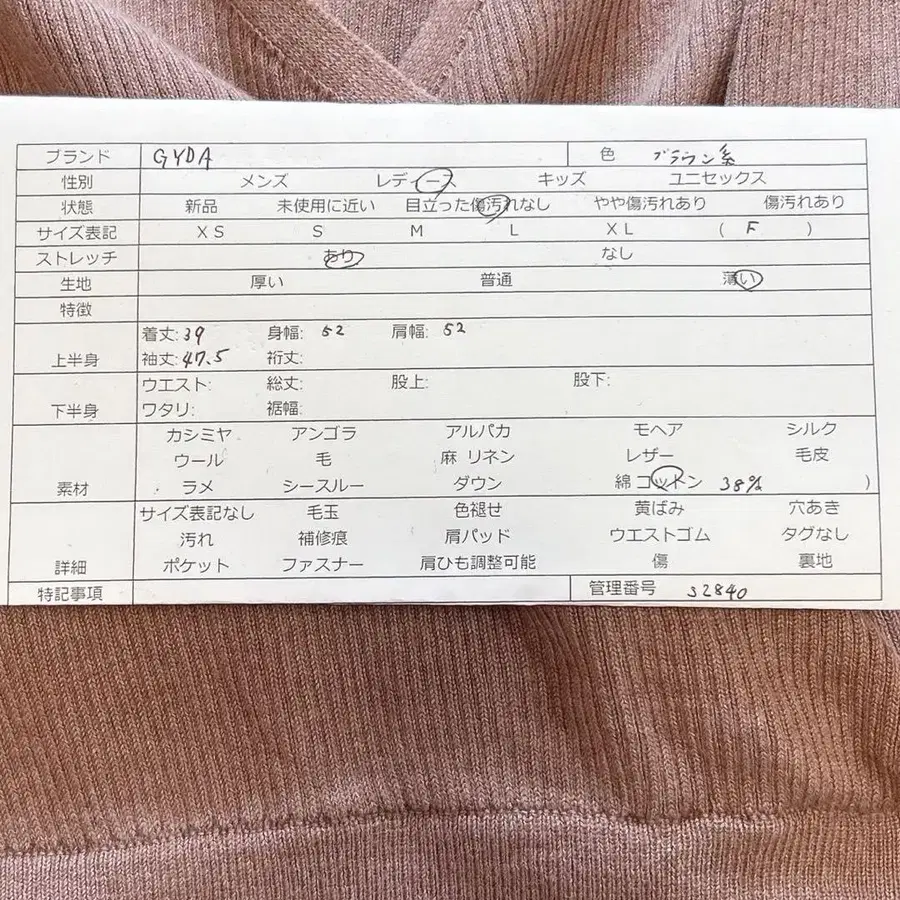 ブランド GYDA 色 ブラウン系
性別 メンズ レディース キッズ ユニセックス
状態 新品 未使用に近い 目立った傷汚れなし やや傷汚れあり 傷汚れあり
サイズ表記 XS S M L XL ( F )
ストレッチ あり なし
生地 厚い 普通 薄い
特徴
着丈: 39 身幅: 52 肩幅: 52
上半身 袖丈: 47.5 裄丈:
ウエスト: 総丈: 股上: 股下:
下半身 ワタリ: 裾幅:
カシミヤ アンゴラ アルパカ モヘア シルク
ウール 毛 麻 リネン レザー 毛皮
素材 ラメ シースルー ダウン 綿 コットン 38% )
サイズ表記なし 毛玉 色褪せ 黄ばみ 穴あき
汚れ 補修痕 肩パッド ウエストゴム タグなし
詳細 ポケット ファスナー 肩ひも調整可能 傷 裏地
特記事項 管理番号 32840